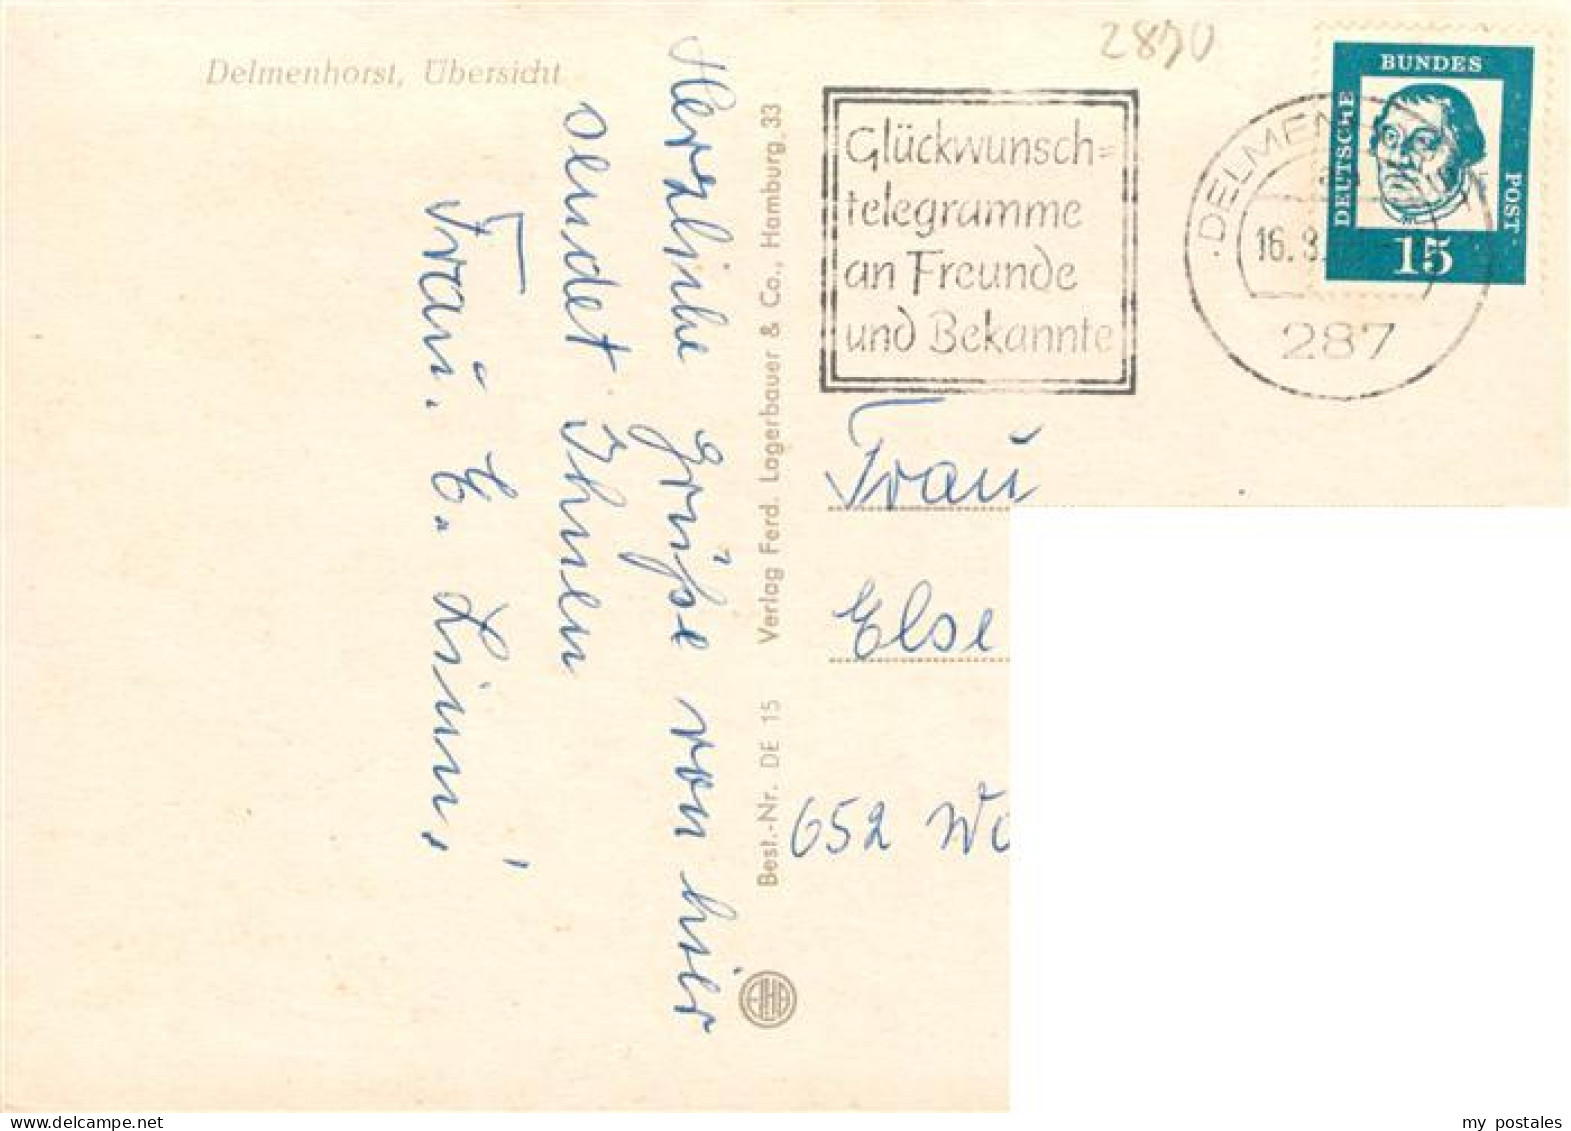 Delmenhorst, Übersicht
Herzliche Grüße von hier
sendet Ihnen
Frau. E.
Best.-Nr. DE 15 Verlag Ferd. Lagerbauer & Co., Hamburg, 33
2870
Glückwunsch=
telegramme
an Freunde
und Bekannte
DELMEN
16. 8.
287
DEUTSCHE
BUNDES
POST
15
Frau
Else
652 Wo
my postales